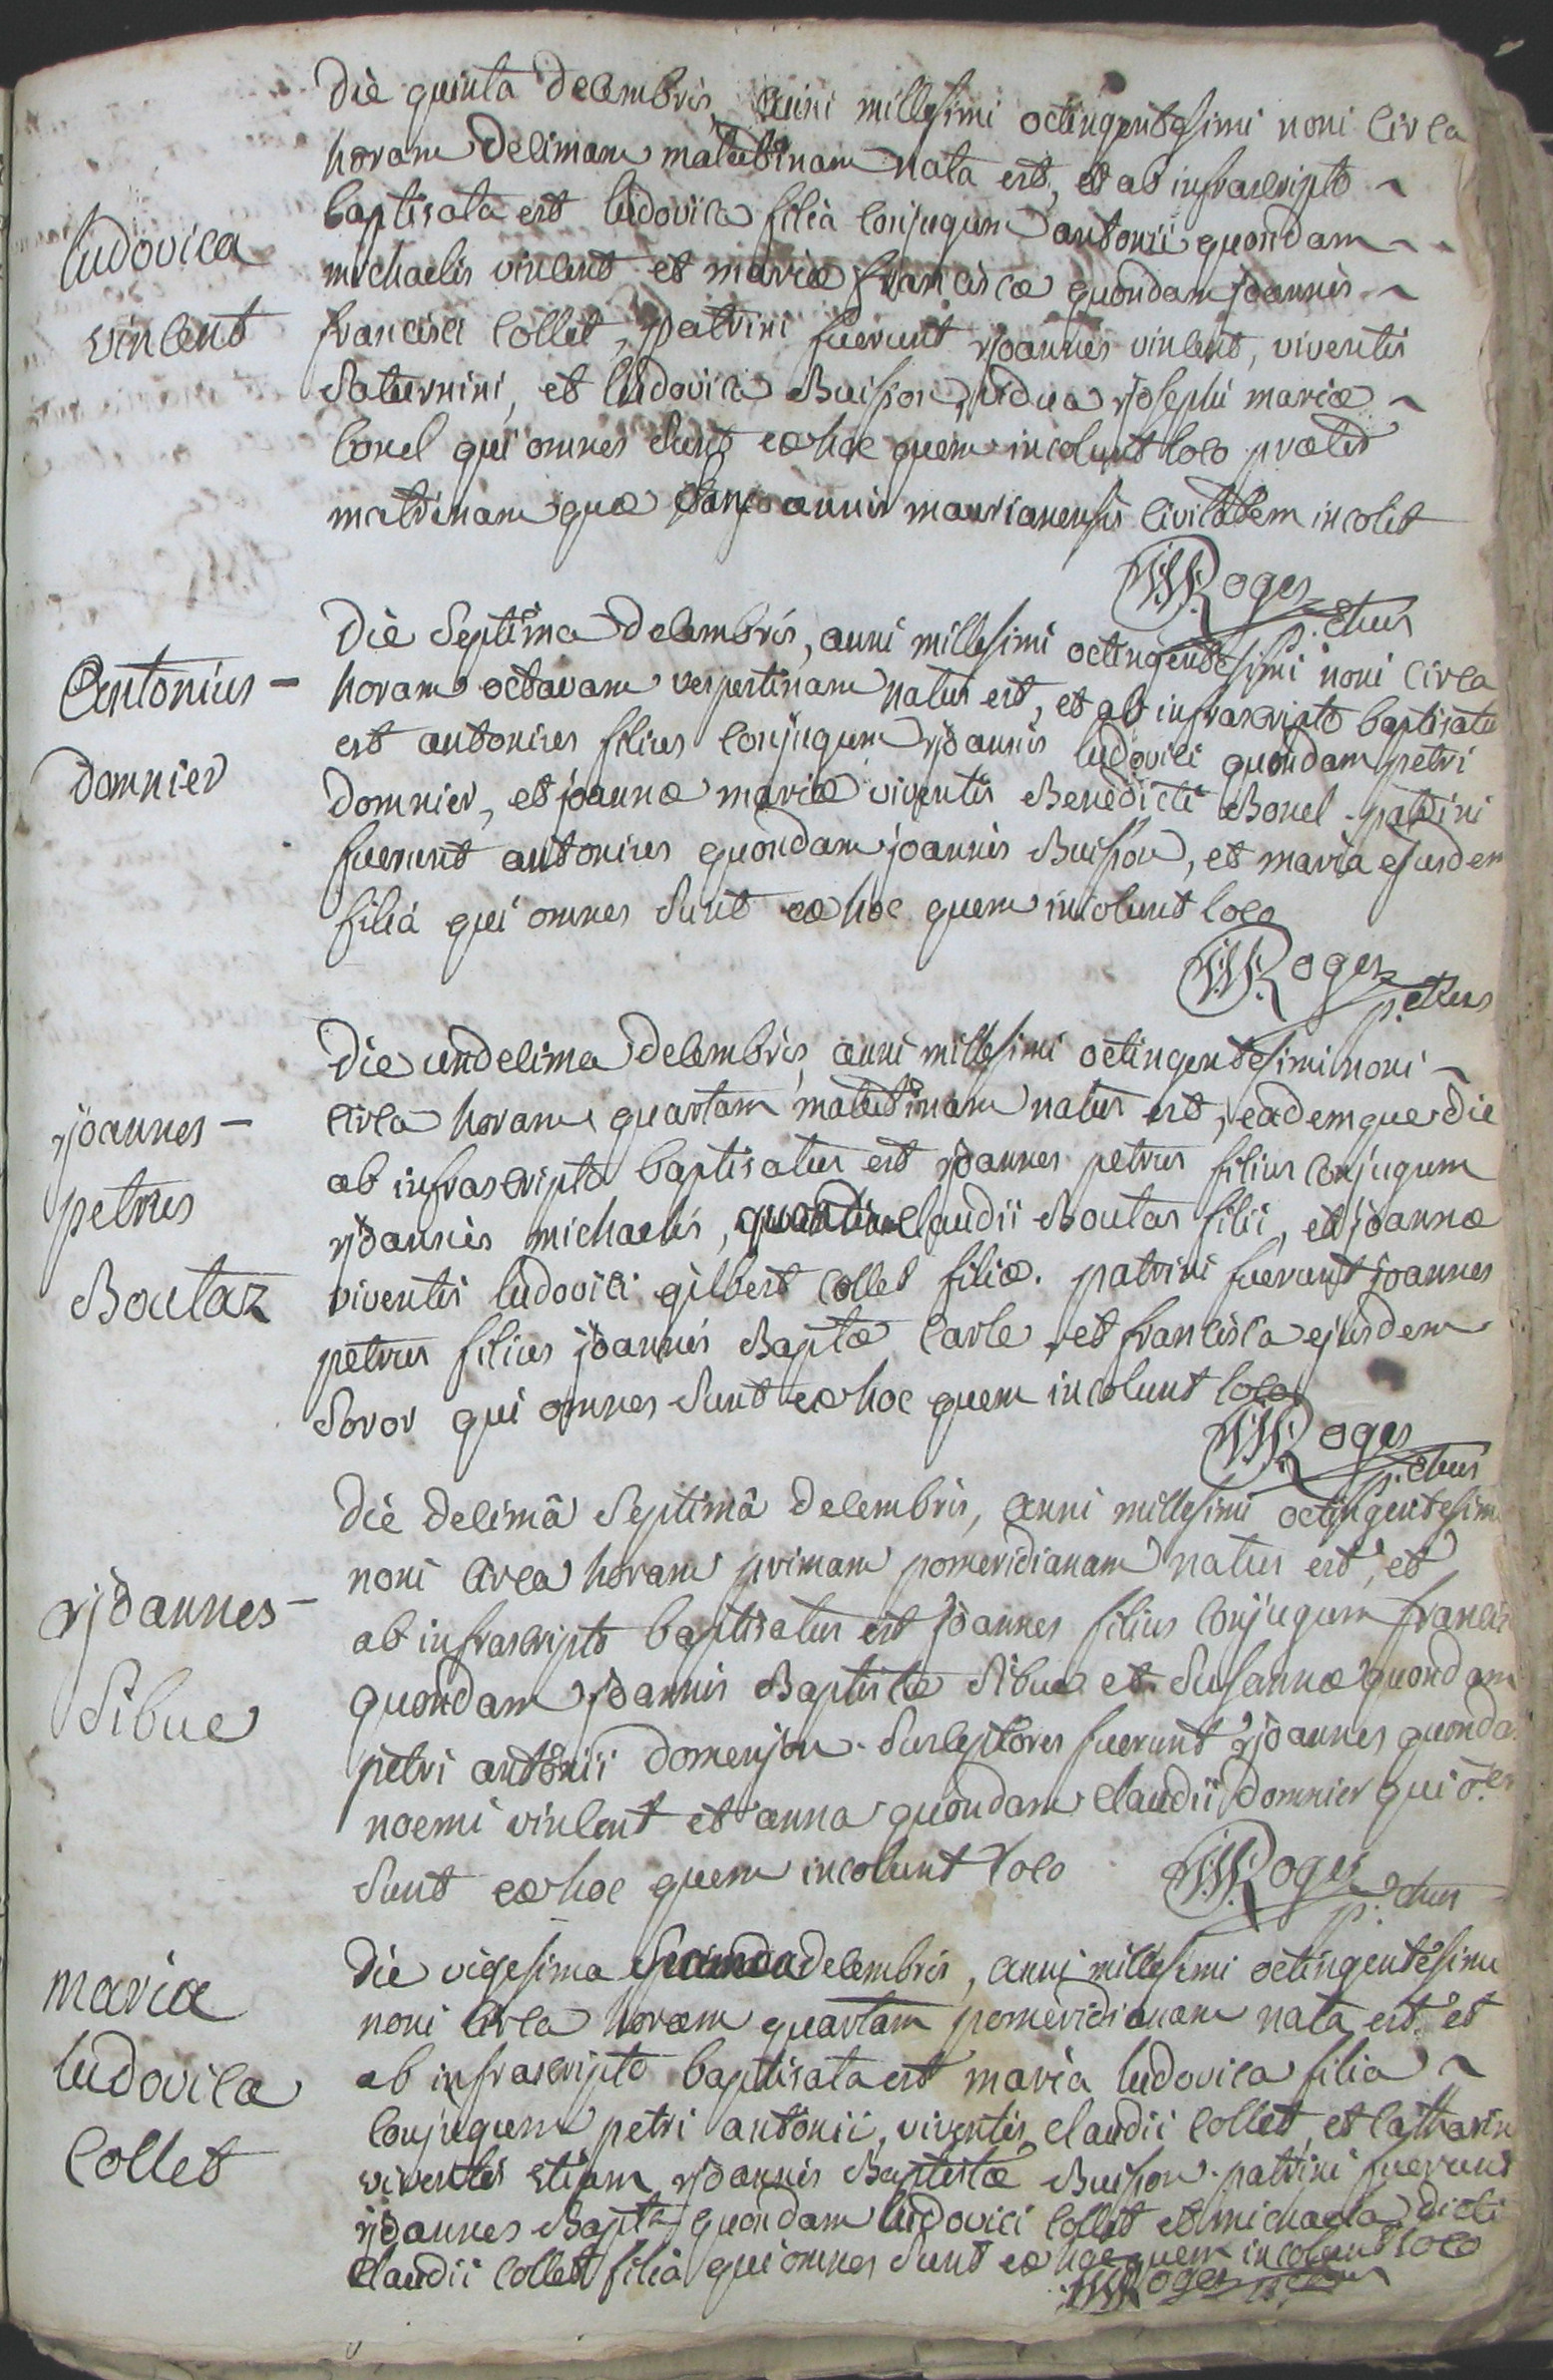 Die quinta Decembris, anni millesimi octingentesimi noni circa
horam Decimam matutinam nata est, et ab infrascripto ~
baptisata est ludovica filia conjugum antonii quondam ~
ludovica
michaelis vincent et mariæ franciscæ quondam joannis ~
vincent
francisci Collet, patrini fuerunt joannes vincent, viventis
Saturnini, et ludovica Buisson, vidua josephi mariæ ~
bonel qui omnes sunt ex hoc quem incolunt loco præter
matrinam quæ Sancjoannis maurianensis Civitatem incolit
Roges
Die Septima Decembris, anni millesimi octingentesimi noni circa
Antonius -
horam octavam vespertinam natus est, et ab infrascripto baptisatus
est antonius filius conjugum joannis ludovici quondam petri
Domnier
Domnier, et joannæ mariæ viventis Benedicti Bonel. patrini
fuerunt antonius quondam joannis Buisson, et maria ejusdem
filia qui omnes Sunt ex hoc quem incolunt loco
Roges
Die undecima Decembris, anni millesimi octingentesimi noni ~
joannes -
circa horam quartam matutinam natus est, eademque die
petrus
ab infrascripto baptisatus est joannes petrus filius conjugum
joannis michaelis, Claudii Boutas filii, et joannæ
Boutaz
viventis ludovici gilbert Collet filiæ. patrini fuerunt joannes
petrus filius joannis Baptæ Carle, et francisca ejusdem
Soror qui omnes Sunt ex hoc quem incolunt loco
Roges
Die Decimâ Septimâ Decembris, anni millesimi octingentesimi
noni circa horam primam pomeridianam natus est, et
joannes -
ab infrascripto baptisatus est joannes filius conjugum francis
quondam joannis Baptistæ Sibue et Susannæ quondam
Sibue
petri antonii Domenjon. Susceptores fuerunt joannes quonda
noemi vincent et anna quondam Claudii Domnier qui o.es
Sunt ex hoc quem incolunt loco
Roges
Die vigesima Secunda decembris, anni millesimi octingentesimi
maria
noni circa horam quartam pomeridianam nata est et
ludovica
ab infrascripto baptisata est maria ludovica filia ~
conjugum petri antonii, viventis Claudii Collet, et Catharin
Collet
viventis etiam joannis Baptistæ Buisson. patrini fuerunt
joannes Bapta quondam ludovici Collet et michaela dicti
Claudii Collet filia qui omnes Sunt ex hoc quem incolunt loco
Roges